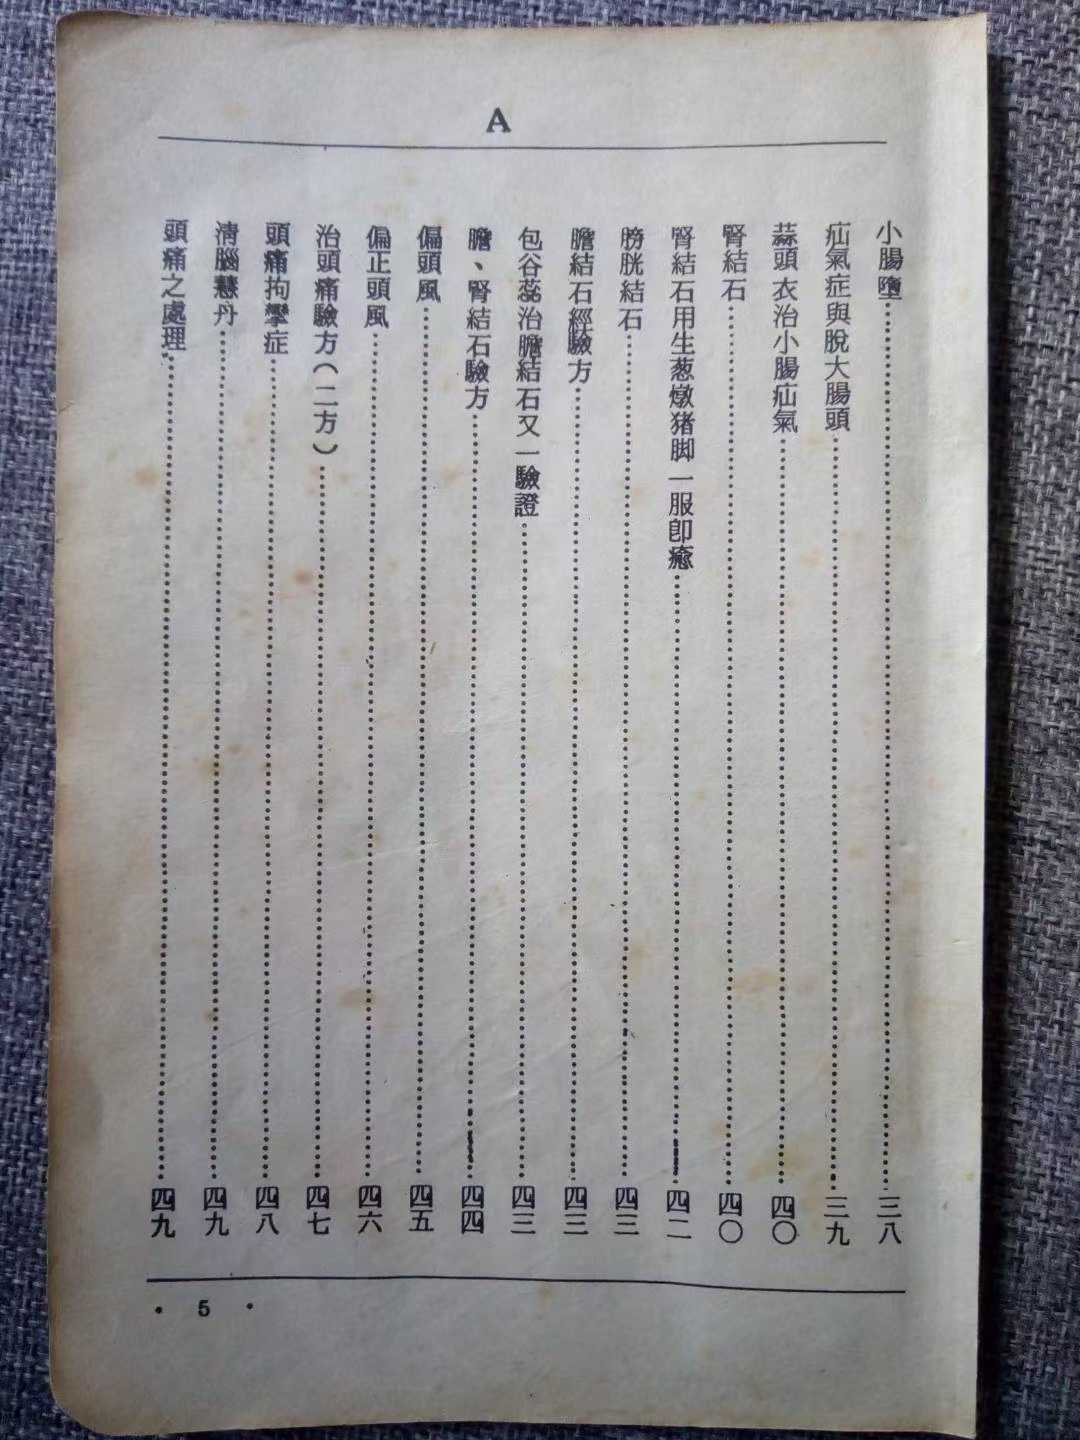 A
小腸墮……三八
疝氣症與脫大腸頭……三九
蒜頭衣治小腸疝氣……四〇
腎結石……四〇
腎結石用生葱燉猪脚一服卽癒……四二
膀胱結石……四三
膽結石經驗方……四三
包谷蕊治膽結石又一驗證……四三
膽、腎結石驗方……四四
偏頭風……四五
偏正頭風……四六
治頭痛驗方(二方)……四七
頭痛拘攣症……四八
淸腦慧丹……四九
頭痛之處理……四九
• 5 •